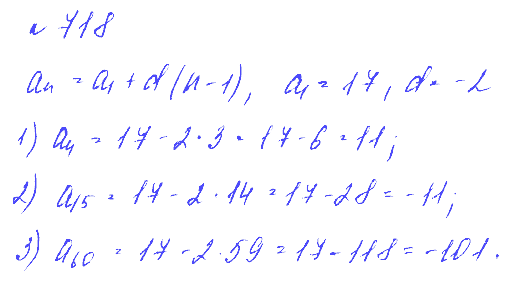 № 718
aₙ = a₁ + d(n-1), a₁ = 17, d = -2
1) a₄ = 17 - 2 · 3 = 17 - 6 = 11;
2) a₁₅ = 17 - 2 · 14 = 17 - 28 = -11;
3) a₆₀ = 17 - 2 · 59 = 17 - 118 = -101.